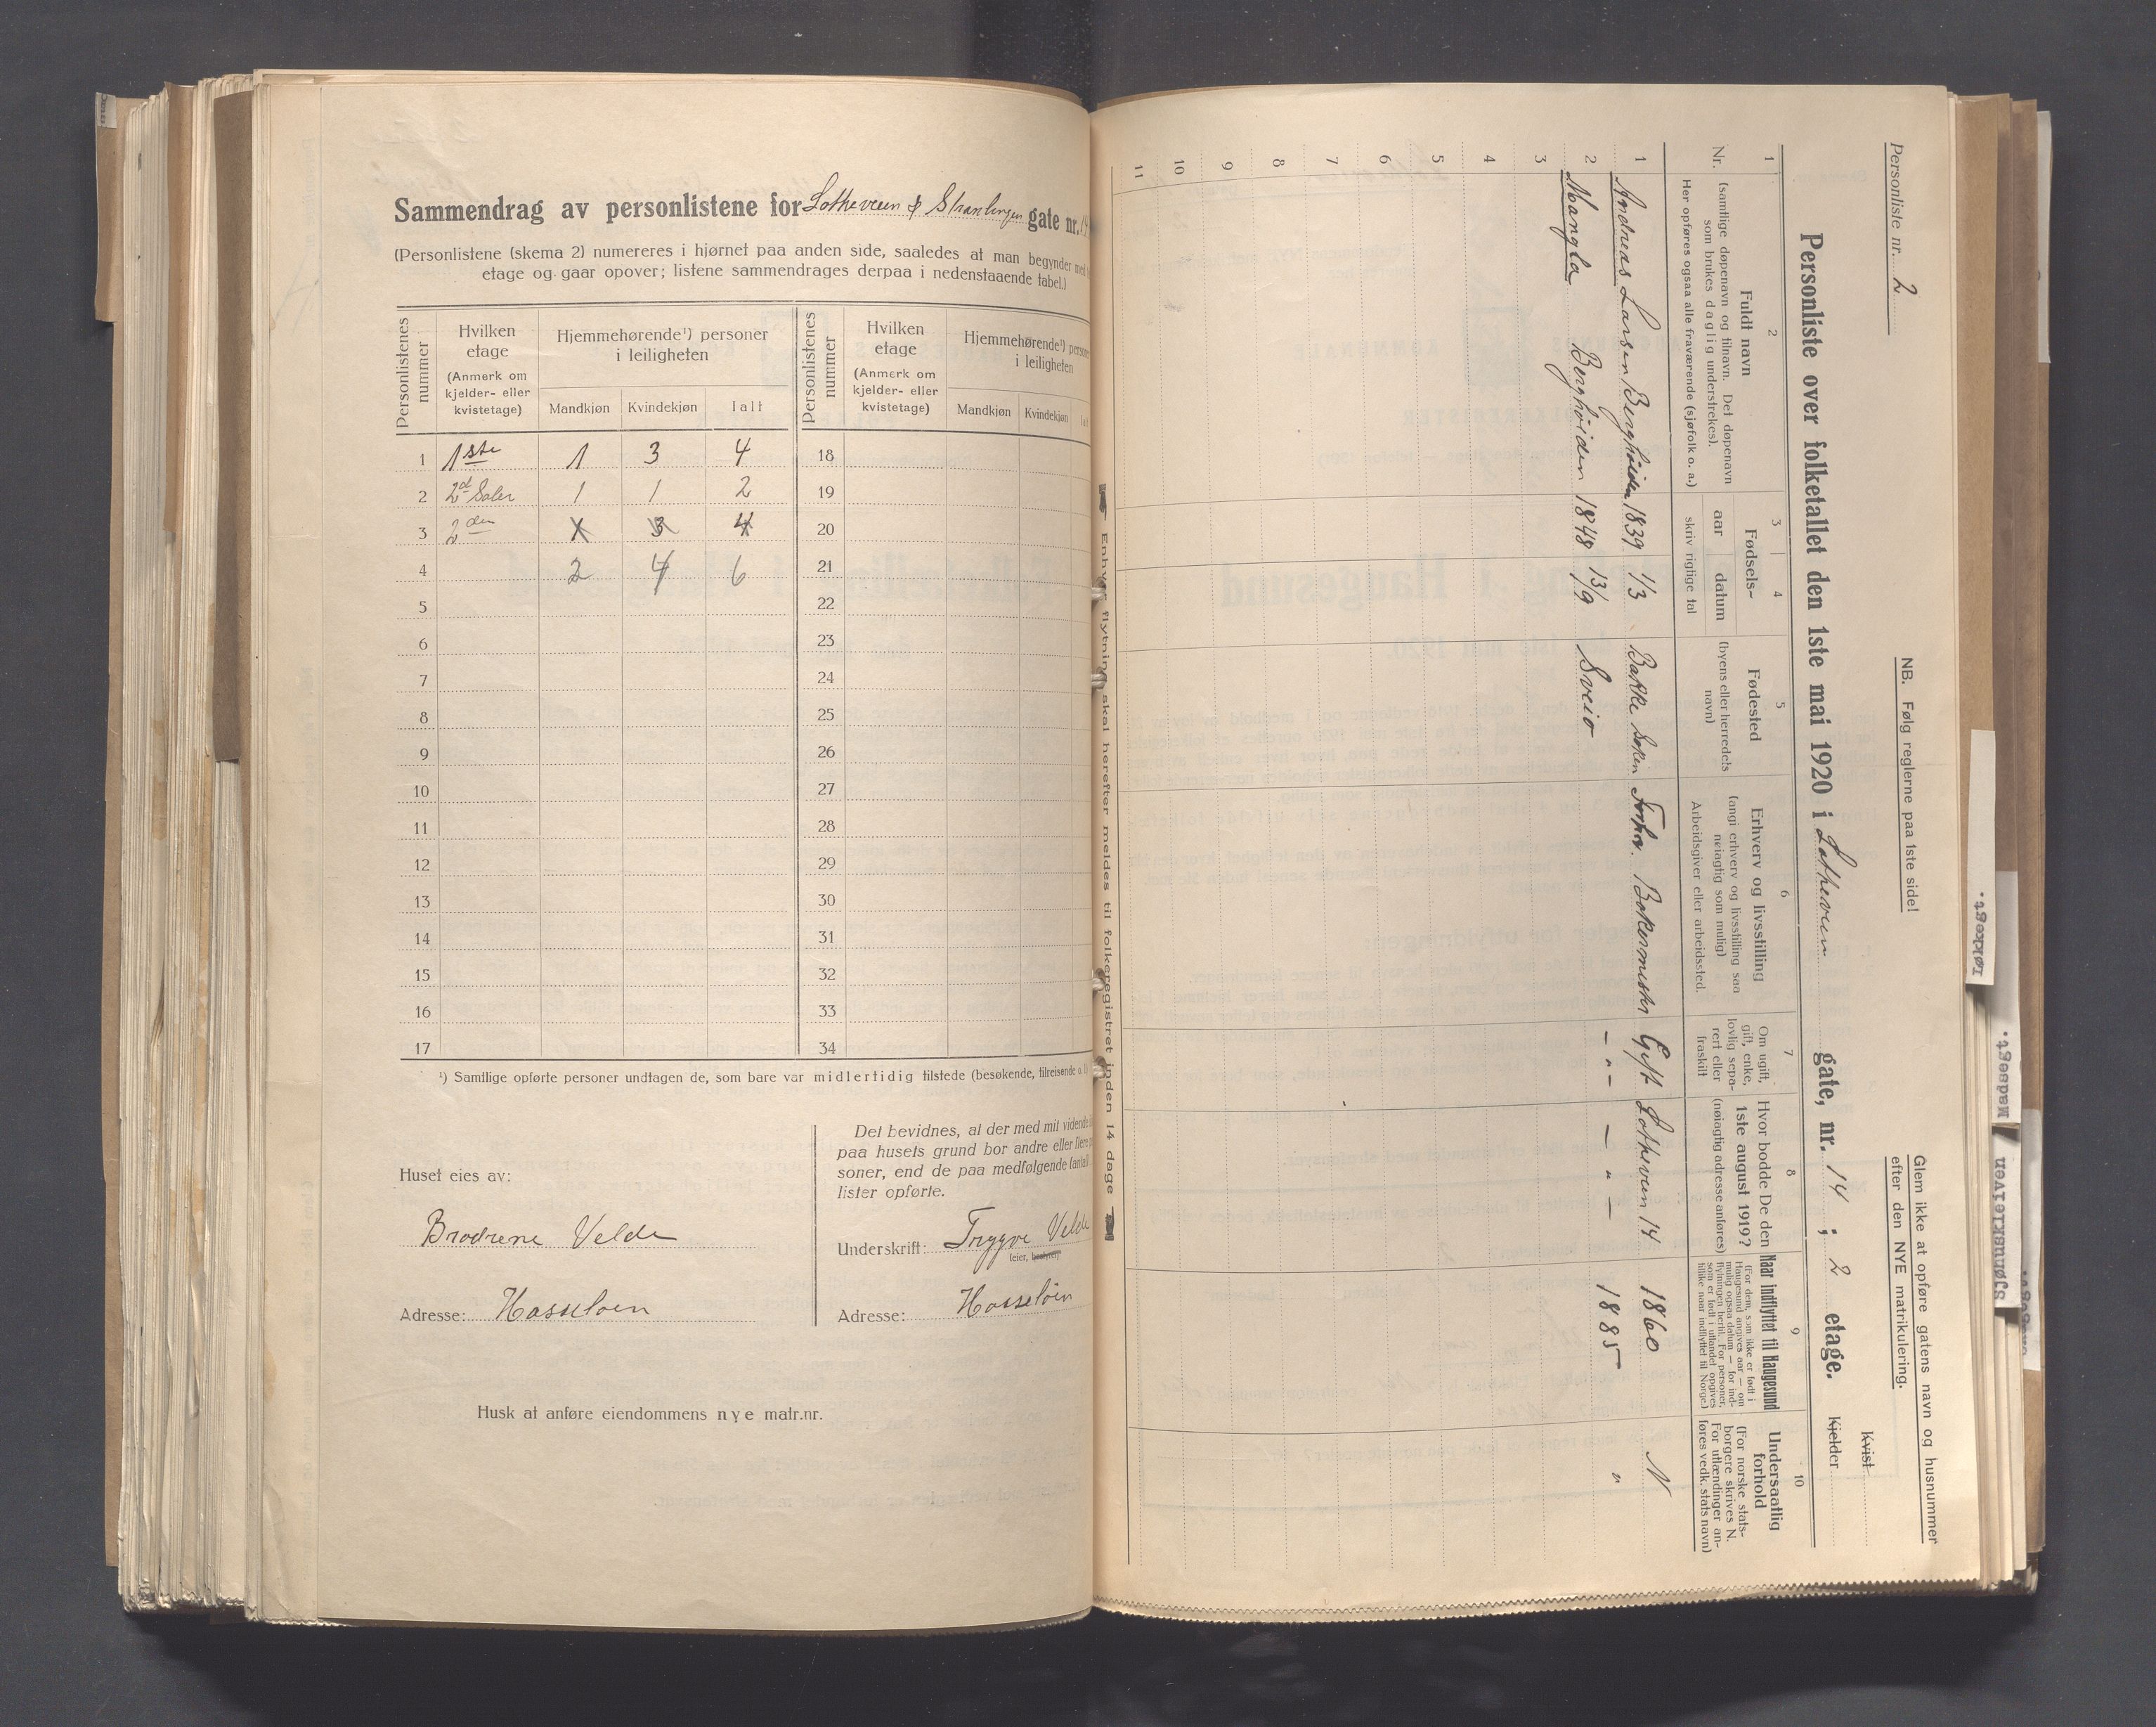 Sammendrag av personlistene for Lotheveien & Strandingen gate nr. 14
(Personlistene (skema 2) numereres i hjørnet paa anden side, saaledes at man begynder med
etage og gaar opover; listene sammendrages derpaa i nedenstaaende tabel.)
Personlistenes nummer
Hvilken etage (Anmerk om kjelder- eller kvistetage)
Hjemmehørende¹) personer i leiligheten
Mandkjøn Kvindekjøn Ialt
Personlistenes nummer
Hvilken etage (Anmerk om kjelder- eller kvistetage)
Hjemmehørende¹) personer i leiligheten
Mandkjøn Kvindekjøn Ialt
1 1ste 1 3 4 18
2 2d Saler 1 1 2 19
3 2den X 3 4 20
4 2 4 6 21
5 22
6 23
7 24
8 25
9 26
10 27
11 28
12 29
13 30
14 31
15 32
16 33
17 34
¹) Samtlige opførte personer undtagen de, som bare var midlertidig tilstede (besøkende, tilreisende o. l.)
Huset eies av:
Brødrene Velde
Adresse: Hasseløen
Det bevidnes, at der med mit vidende
paa husets grund bor andre eller flere
soner, end de paa medfølgende (antal)
lister opførte.
Underskrift: Trygve Velde
(eier, bestyrer)
Adresse: Hasseløen
Husk at anføre eiendommens nye matr.nr.
Personliste nr. 2
NB. Følg reglerne paa 1ste side!
Glem ikke at opføre gatens navn og husnummer
efter den NYE matrikulering.
Personliste over folketallet den 1ste mai 1920 i Lotheveien gate, nr. 14 ; 2 etage.
Kvist
Kjelder
1 2 3 4 5 6 7 8 9 10
Nr.
Fuldt navn
(samtlige døpenavn og tilnavn. Det døpenavn
som brukes daglig understrekes).
Her opføres ogsaa alle fraværende (sjøfolk o. a.)
Fødsels-
aar datum
skriv riglige tal
Fødested
(byens eller herredets
navn)
Erhverv og livsstilling
(angi erhverv og livsstilling saa
nøiagtig som mulig)
Arbeidsgiver eller arbeidssted.
Om ugift,
gift, enke,
lovlig sepa-
rert eller
fraskilt
Hvor bodde De den
1ste august 1919?
(nøiagtig adresse anføres)
Naar indflyttet til Haugesund
(For dem, som ikke er født i
Haugesund angives aar — om
mulig ogsaa datum — for ind-
flytningen hertil. For personer,
som er født i utlandet opgives
tillike naar indflyttet til Norge.)
Undersaatlig
forhold
(For norske stats-
borgere skrives N.
For utlændinger an-
føres vedk. stats navn)
1 Andreas Larsen Berghøiden 1839 1/3 Bakke Soken Forhv. Bakermester Gift Lotheveien 14 1860 N
2 Mangla Berghøiden 1848 13/9 Sveio — „ — — „ — 1885 „
3
4
5
6
7
8
9
10
11
Enhver flytning skal herefter meldes til folkeregistret inden 14 dage
Røkkegt.
Madsegt.
Sjømuskriven